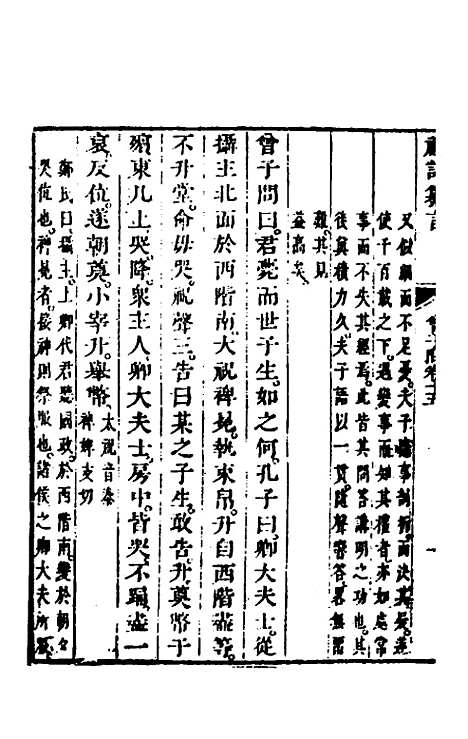 禮記纂言　曾子問卷十五　一
又似網而不足憂夫子隨事剖析而決其疑遂
使千百載之下遇變事而知其權者亦如處常
事而不失其經焉此皆其問答講明之功也其
後真積力久夫子語以一貫隨聲響答畧無疑
難其見
益高矣
曾子問曰君薨而世子生如之何孔子曰卿大夫士從
攝主北面於西階南大祝裨冕執束帛升自西階盡等
不升堂命毋哭祝聲三告曰某之子生敢告升奠幣于
殯東几上哭降衆主人卿大夫士房中皆哭不踊盡一
哀反位遂朝奠小宰升舉幣大祝音泰裨婢支切
鄭氏曰攝主上卿代君聽國政於西階南變於朝夕
哭位也裨冕者接神則祭服也諸侯之卿大夫所服